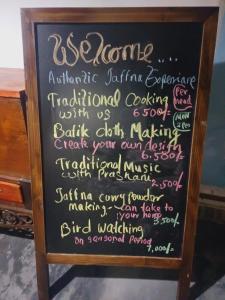 Welcome....
Authentic Jaffna Experiance
Traditional Cooking
with us 6500/-
Per head
Min 2 Pax
Batik cloth Making
Create your own design
6.500/-
Traditional Music
with Prashani
2.500/-
Jaffna curry powder
making - can take to
your home
3.500/-
Bird watching
on seasonal period
7,000/-